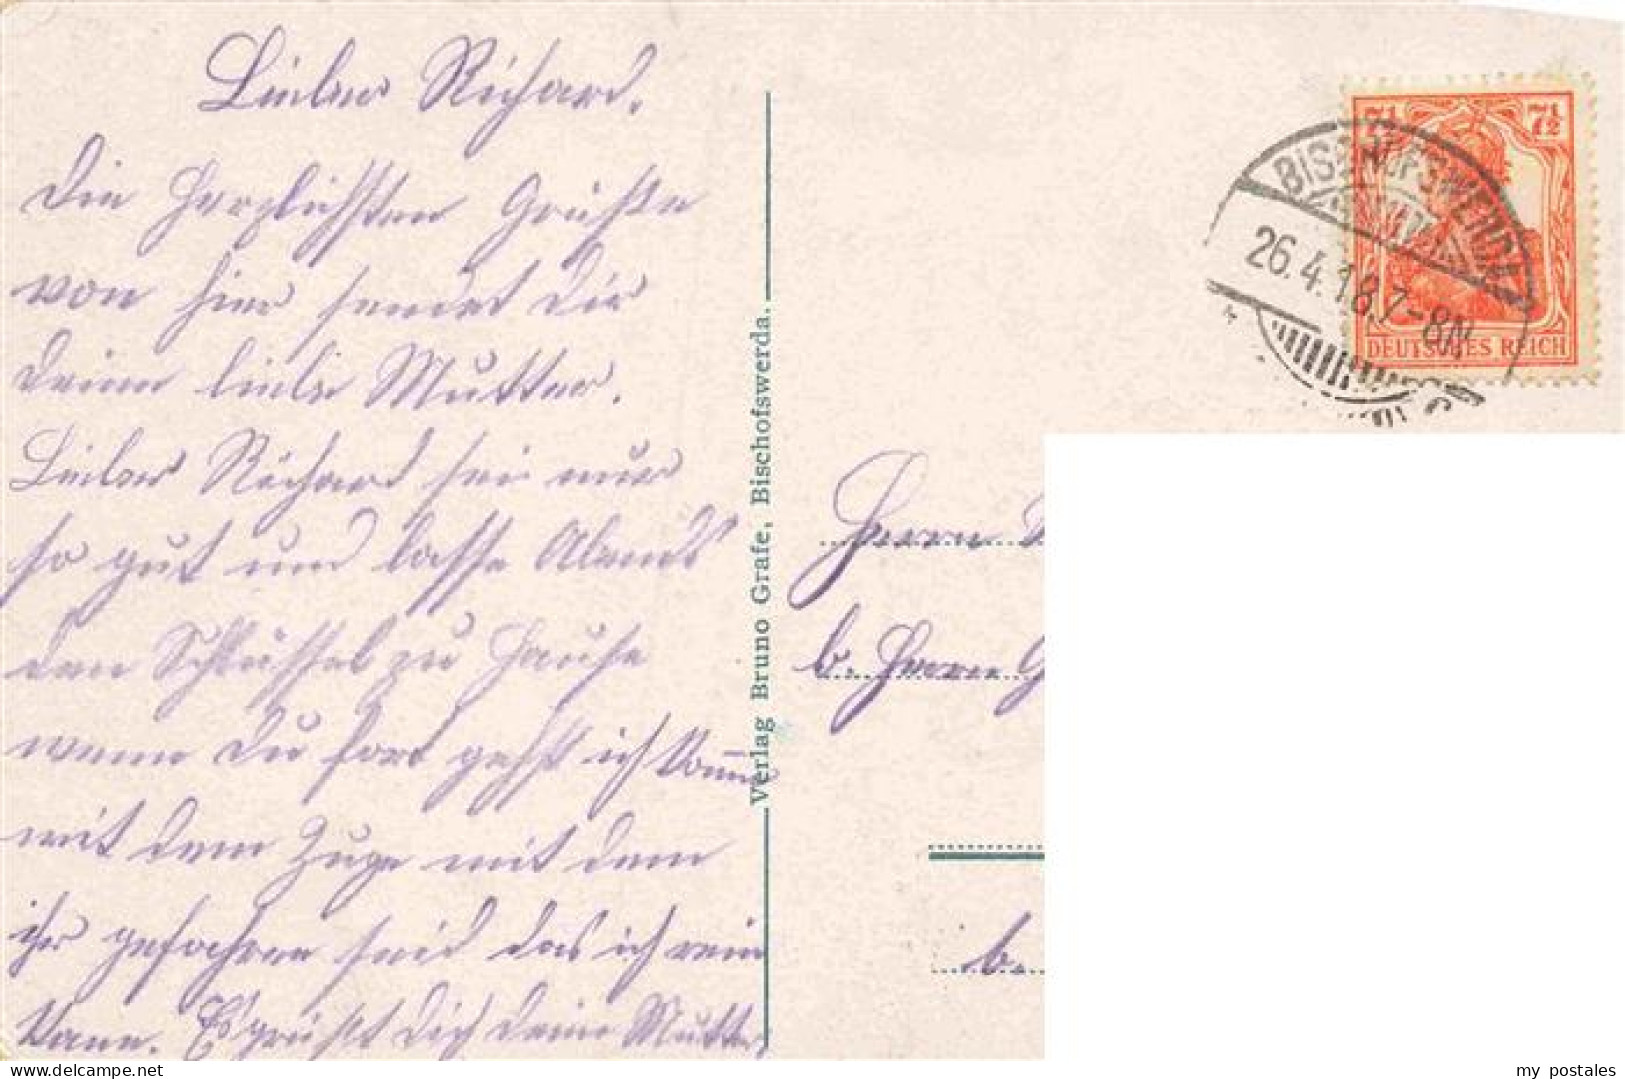 Lieber Richard.
Die herzlichsten Grüße
von hier sendet dir
deine liebe Mutter.
Lieber Richard sei nur
so gut und lasse Abends
den Schlüssel zu Hause
wenn du fort gehst ich komme
mit dem Zuge mit dem
ihr gefahren seid das ich rein
kann. Es grüßt dich deine Mutter
Verlag Bruno Grafe, Bischofswerda.
7½ 7½
DEUTSCHES REICH
BISCHOFSWERDA
26.4.18.7-8N
Herrn
b. Herrn G
b.
my postales